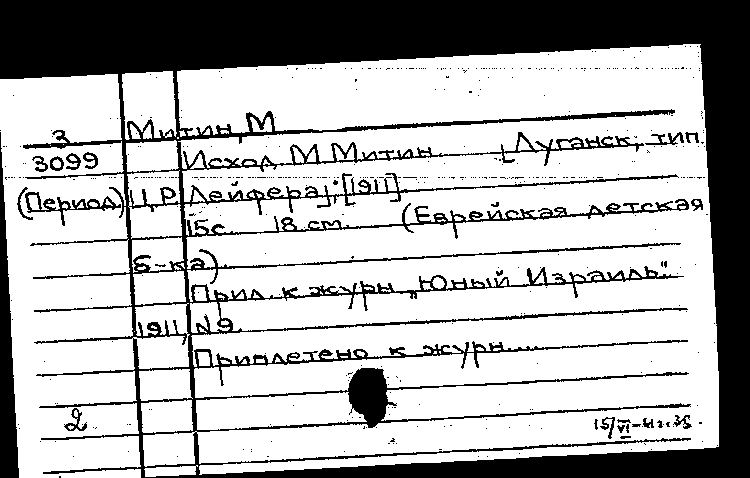 Митин, М
З
3099 Исход. М Митин. [Луганск, тип.
(Период) Ц.Р. Лейфера]; [1911].
15с. 18 см. (Еврейская детская
б-ка).
Прил. к журн „Юный Израиль".
1911, N 9.
Приплетено к журн....
2